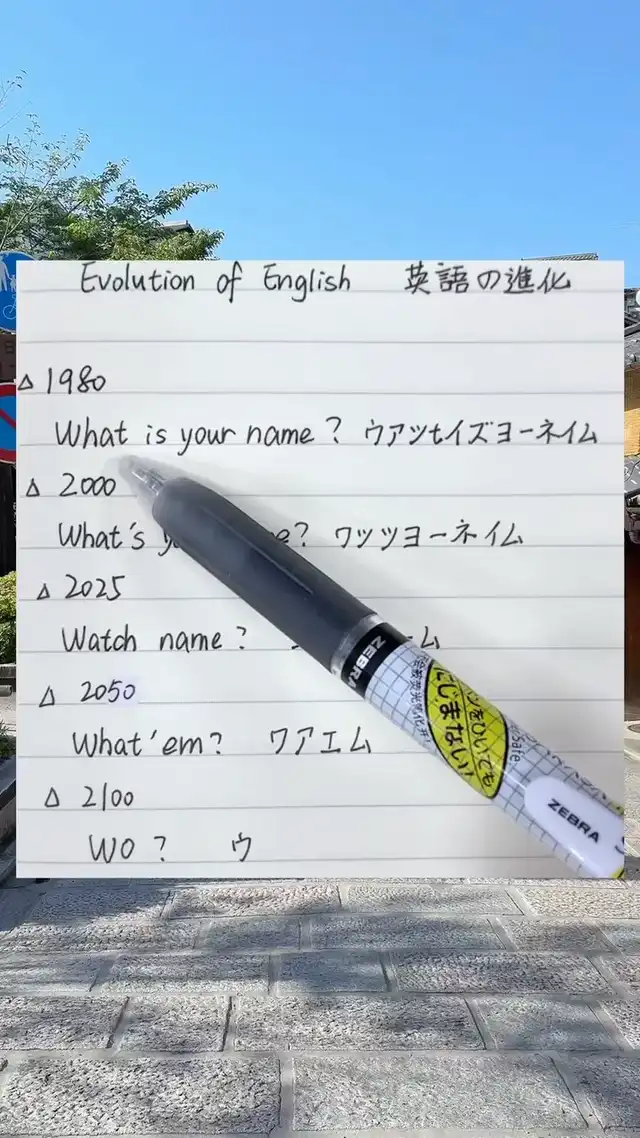 Evolution of English 英語の進化
Δ 1980
What is your name? ウアツtイズヨーネイム
Δ 2000
What's y e? ワッツヨーネイム
Δ 2025
Watch name? ム
Δ 2050
What'em? ワアエム
Δ 2100
Wo? ウ
ZEBRA
にじまない
ZEBRA